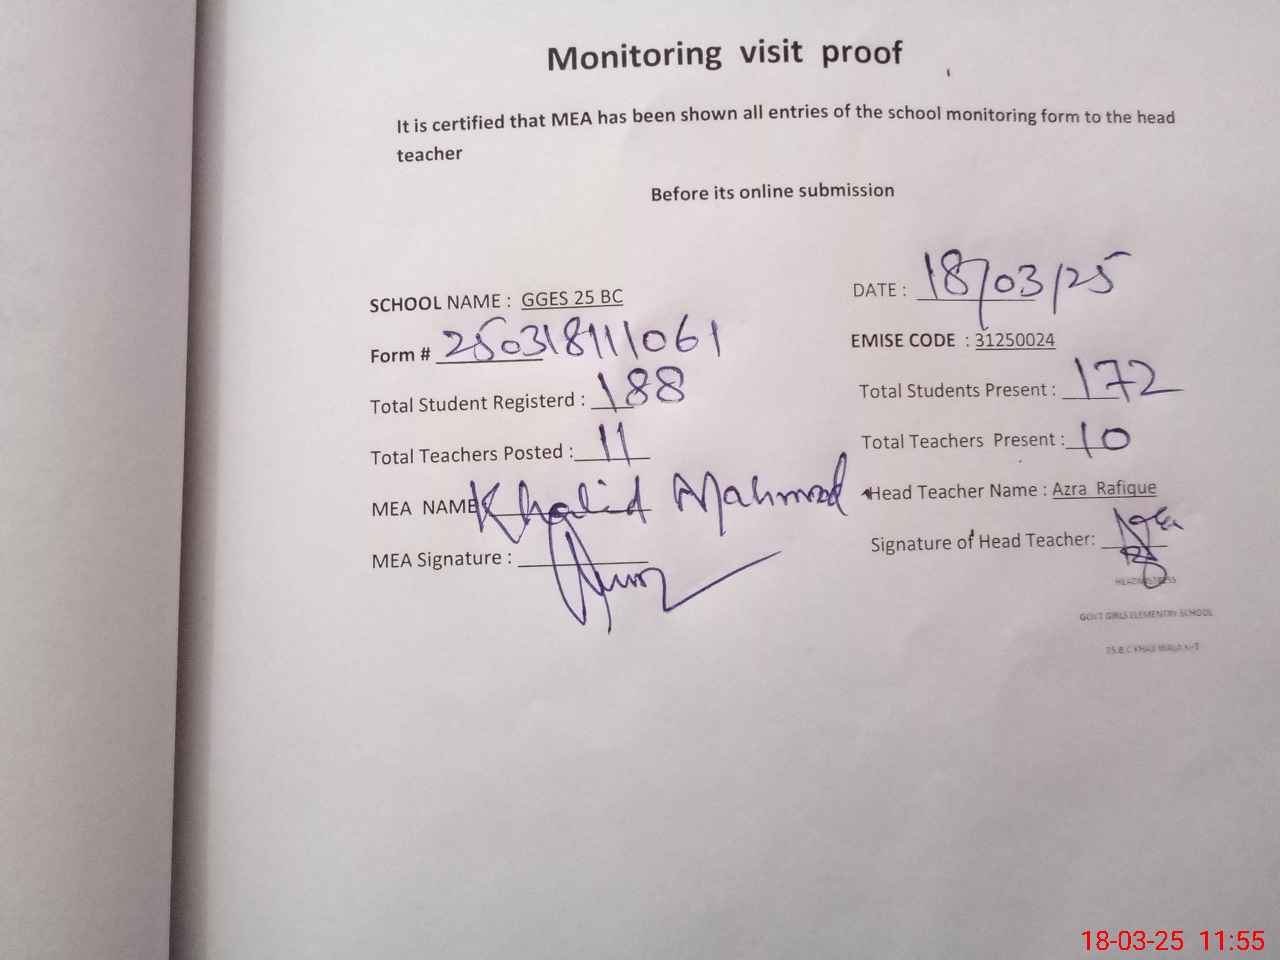 Monitoring visit proof
It is certified that MEA has been shown all entries of the school monitoring form to the head
teacher
Before its online submission
SCHOOL NAME : GGES 25 BC
DATE : 18/03/25
Form # 250318111061
EMISE CODE : 31250024
Total Student Registerd : 188
Total Students Present : 172
Total Teachers Posted : 11
Total Teachers Present : 10
MEA NAME Khalid Mahmood
Head Teacher Name : Azra Rafique
MEA Signature :
Signature of Head Teacher:
HEADMISTRESS
GOVT GIRLS ELEMENTRY SCHOOL
18-03-25 11:55